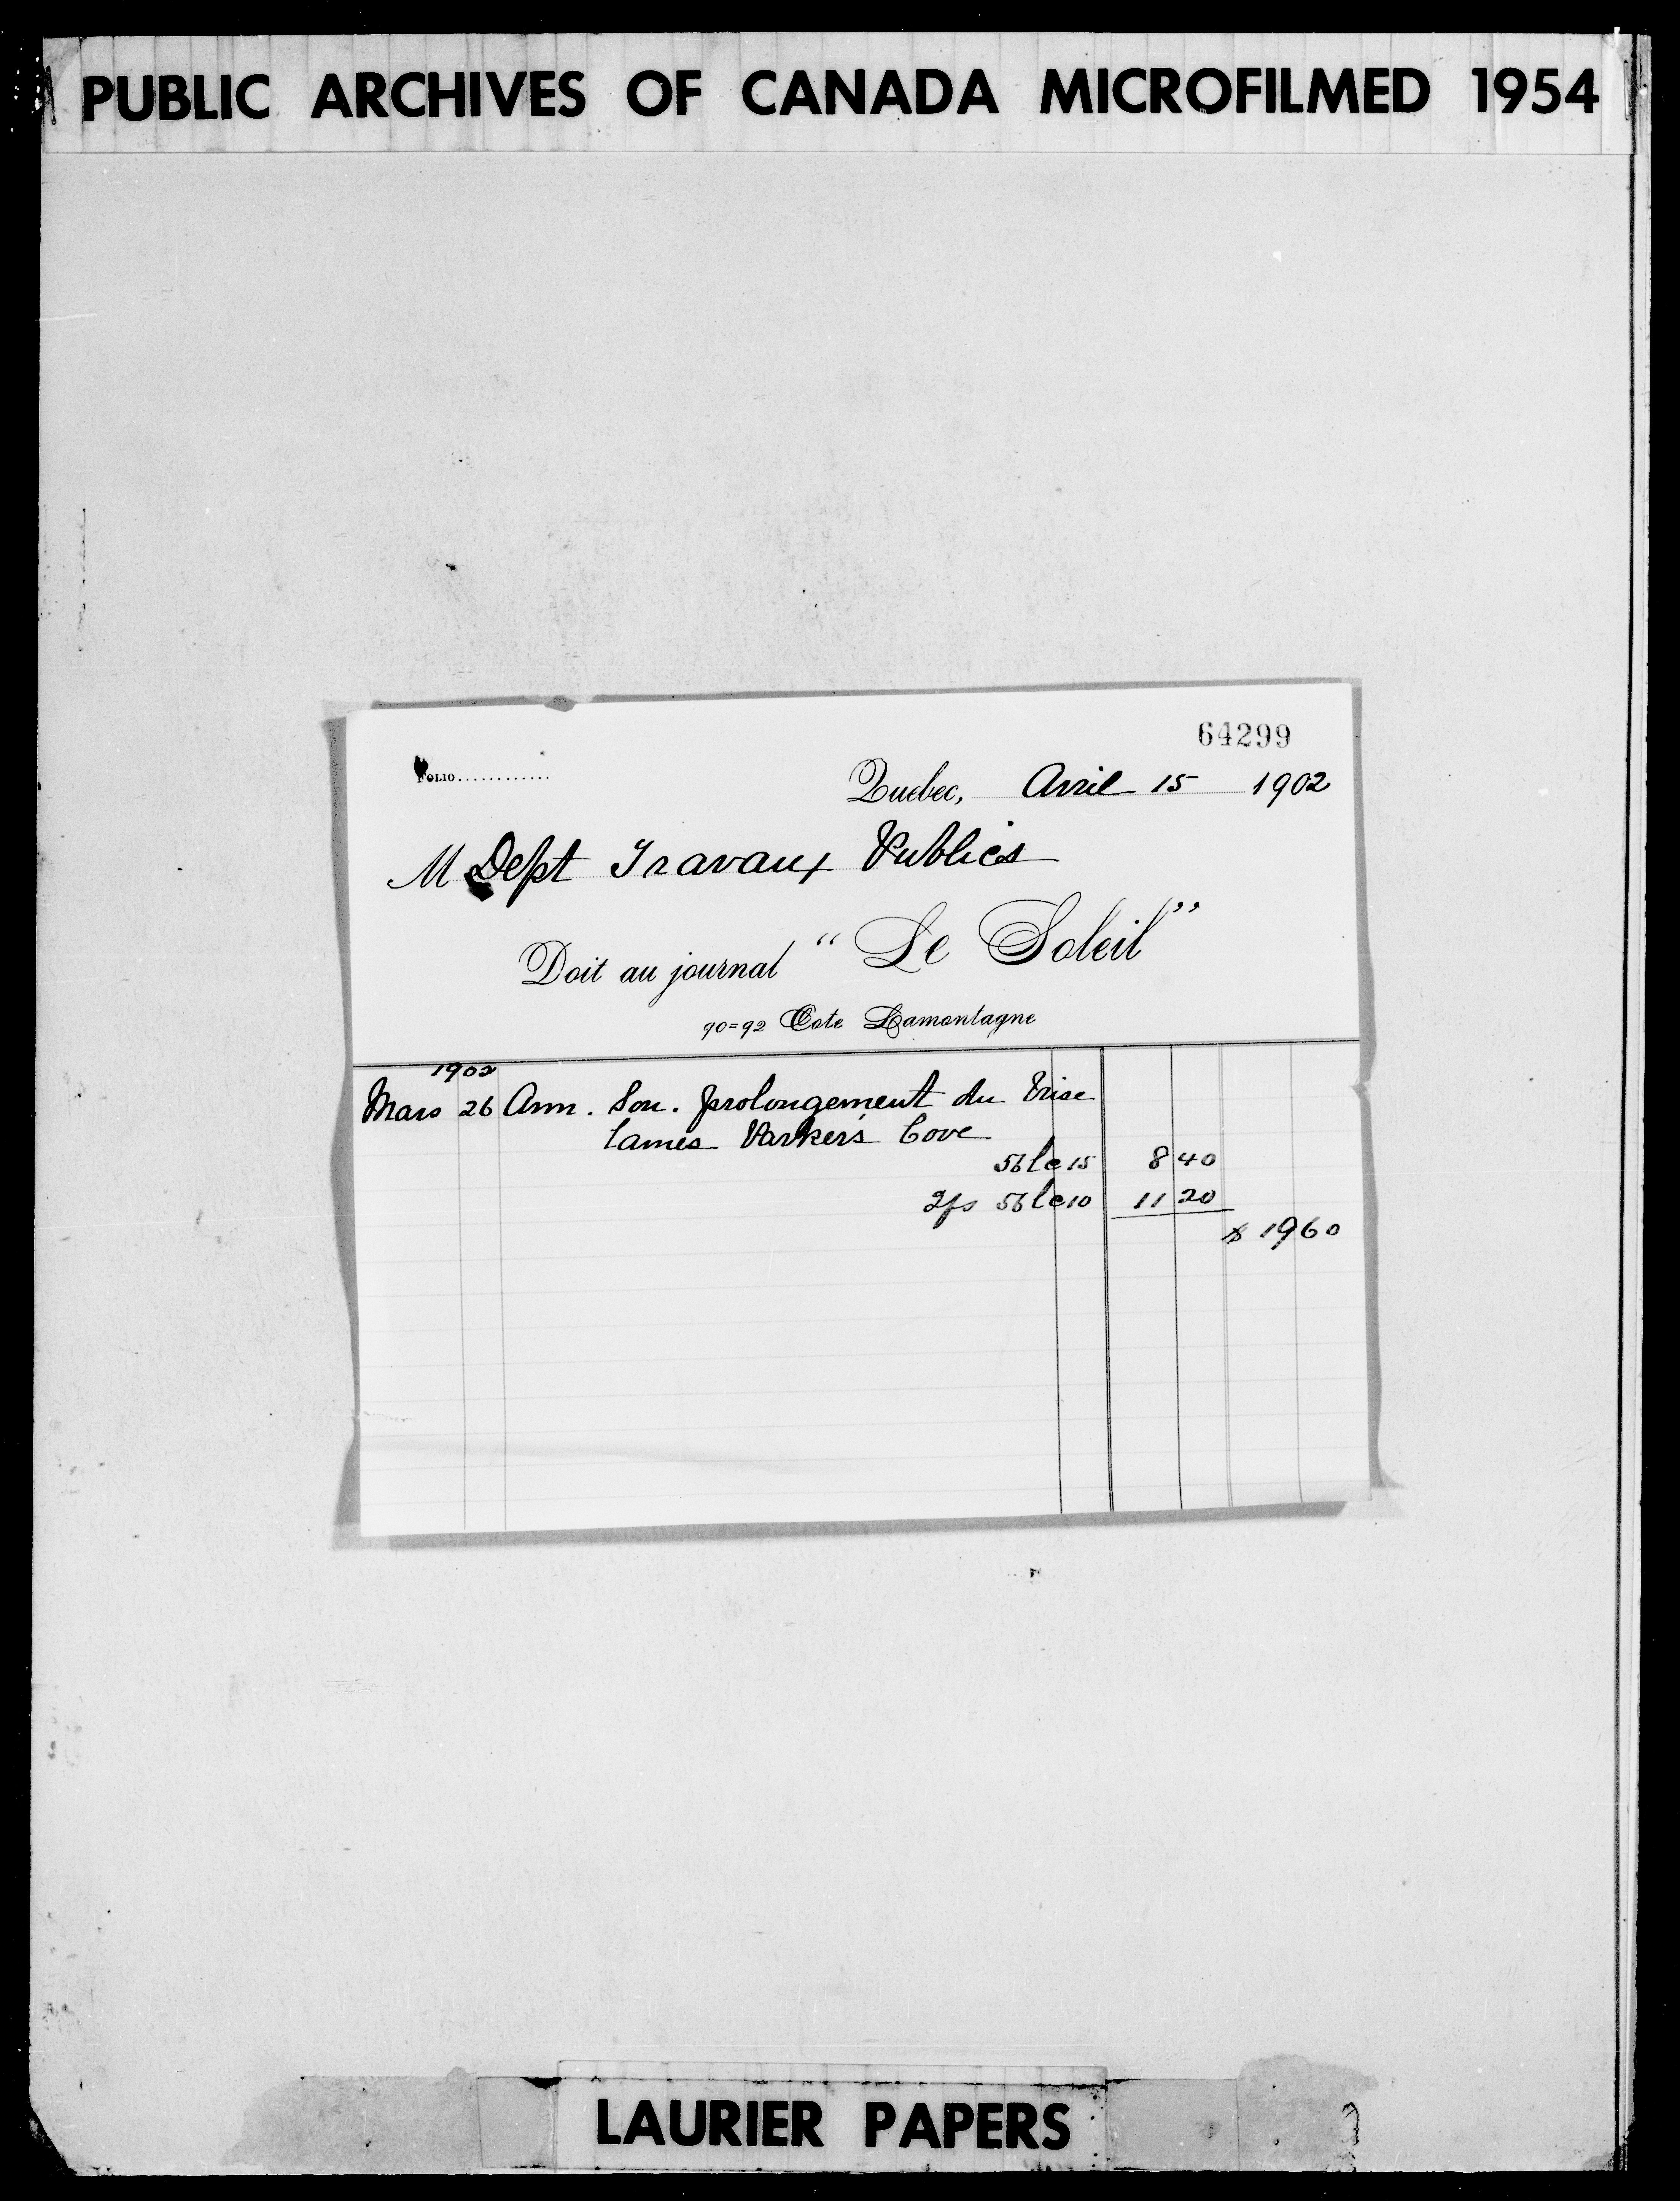 PUBLIC ARCHIVES OF CANADA MICROFILMED 1954
64299
FOLIO............
Quebec, Avril 15 1902
M Dept Travaux Publics
Doit au journal “Le Soleil”
90=92 Cote Lamontagne
1902
Mars 26 Ann. Sou. prolongement du Brise
lames Parker's Cove
56 l @ 15 8 40
2fs 56 l @ 10 11 20
$ 19 60
LAURIER PAPERS